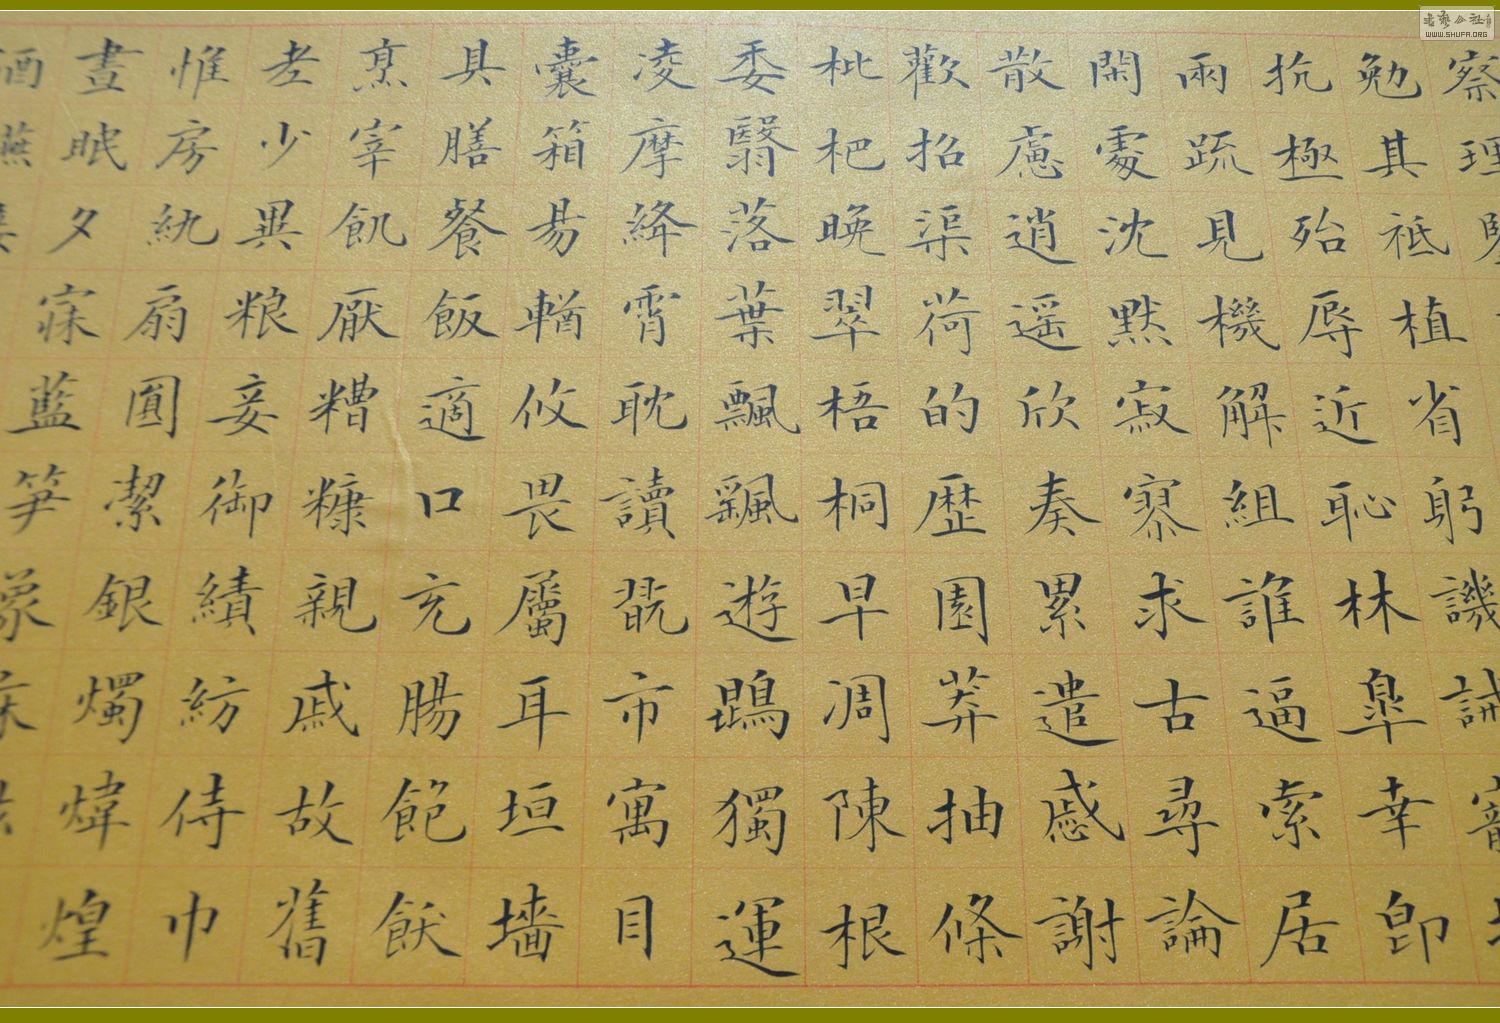 察理鑒
勉其祗植省躬譏誡寵增
抗極殆辱近恥林皐幸即
兩疏見機解組誰逼索居
閑處沈黙寂寥求古尋論
散慮逍遥欣奏累遣慼謝
歡招渠荷的歷園莽抽條
枇杷晚翠梧桐早凋陳根
委翳落葉飄颻遊鵾獨運
凌摩絳霄耽讀翫市寓目
囊箱易輶攸畏屬耳垣墻
具膳餐飯適口充腸飽飫
烹宰飢厭糟糠親戚故舊
老少異粮妾御績紡侍巾
惟房紈扇圓潔銀燭煒煌
晝眠夕寐藍笋象床
酒讌